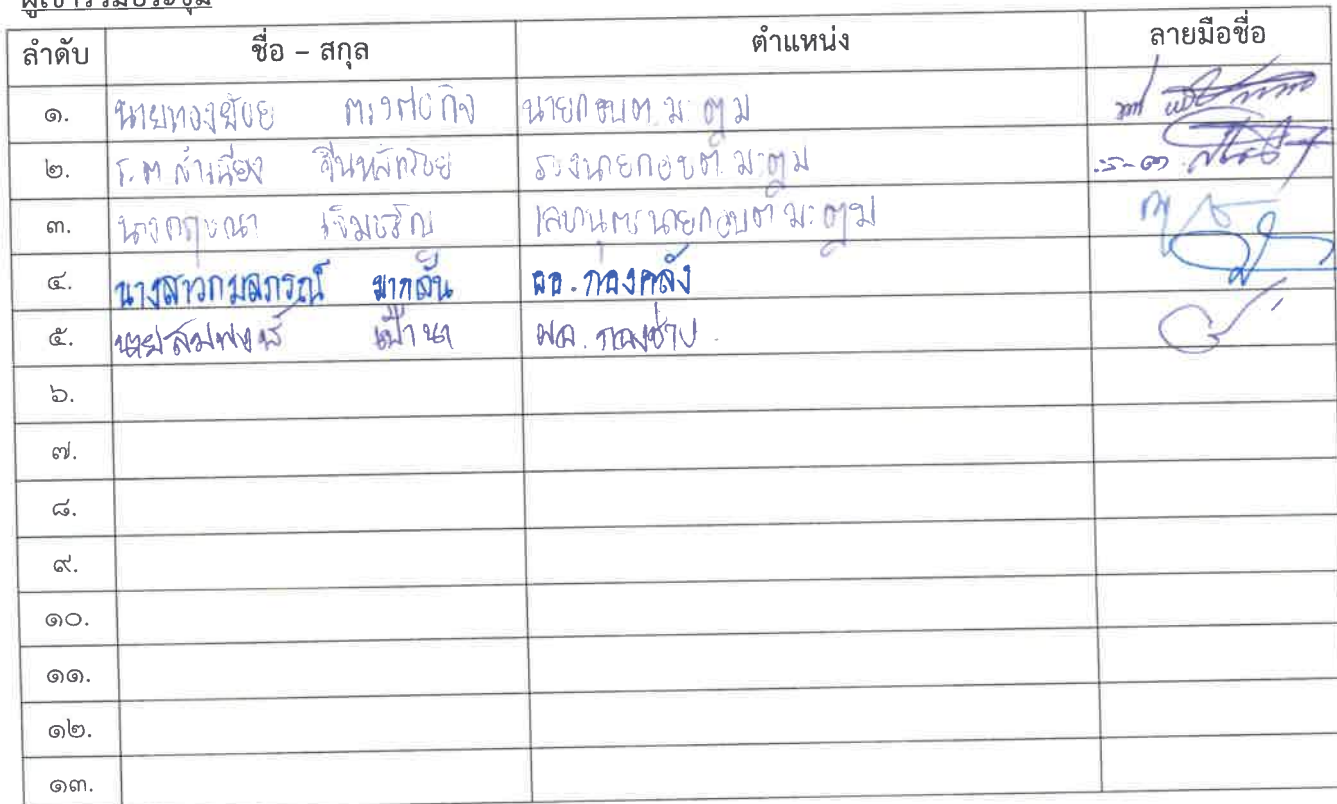 ผู้เข้าร่วมประชุม
ลำดับ ชื่อ - สกุล ตำแหน่ง ลายมือชื่อ
๑. นายทองย้อย นายก อบต.มะตูม
๒. ร.ต.สำเนียง จีนหลักร้อย รองนายก อบต.มะตูม
๓. นางกฤษณา เจิมเจริญ เลขานุการนายก อบต.มะตูม
๔. นางสาวกมลภรณ์ มากล้น ผอ.กองคลัง
๕. นายสมพงษ์ เป้านา ผอ.กองช่าง
๖.
๗.
๘.
๙.
๑๐.
๑๑.
๑๒.
๑๓.